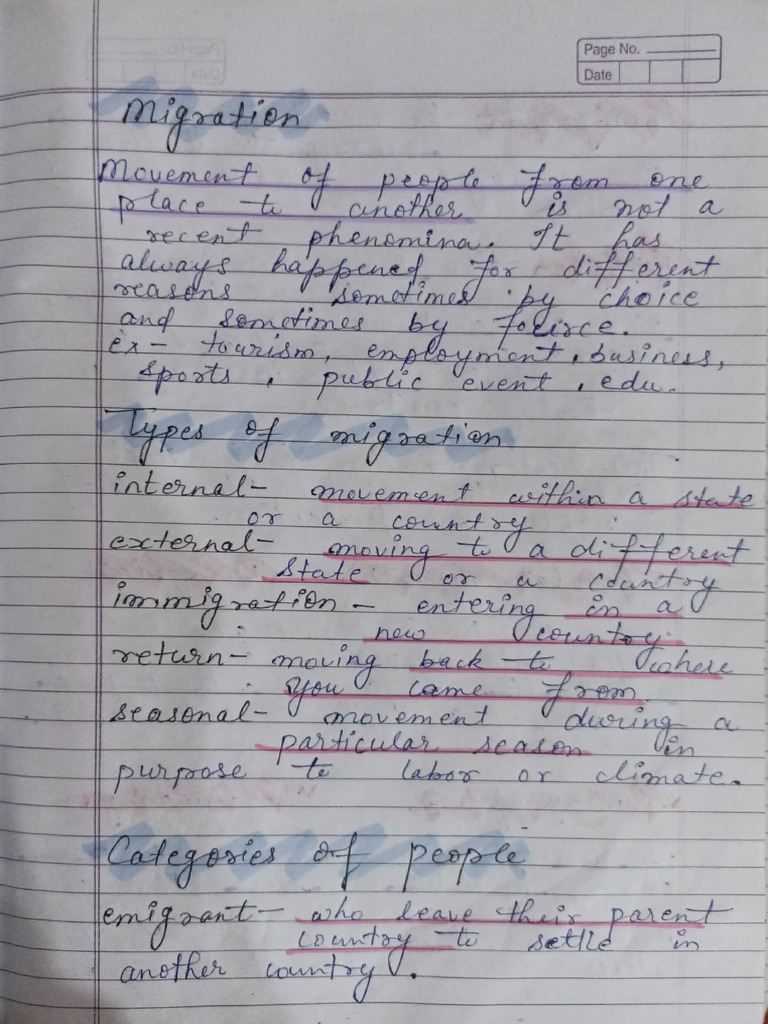 Page No.
Date
Migration
Movement of people from one
place to another is not a
recent phenomina. It has
always happened for different
reasons sometimes by choice
and sometimes by fource.
ex- tourism, employment, business,
sports, public event, edu.
Types of migration
internal- movement within a state
or a country
external- moving to a different
state or a country
immigration - entering in a
new country.
return- moving back to where
you came from.
seasonal- movement during a
particular season in
purpose to labor or climate.
Categories of people
emigrant- who leave their parent
country to settle in
another country.